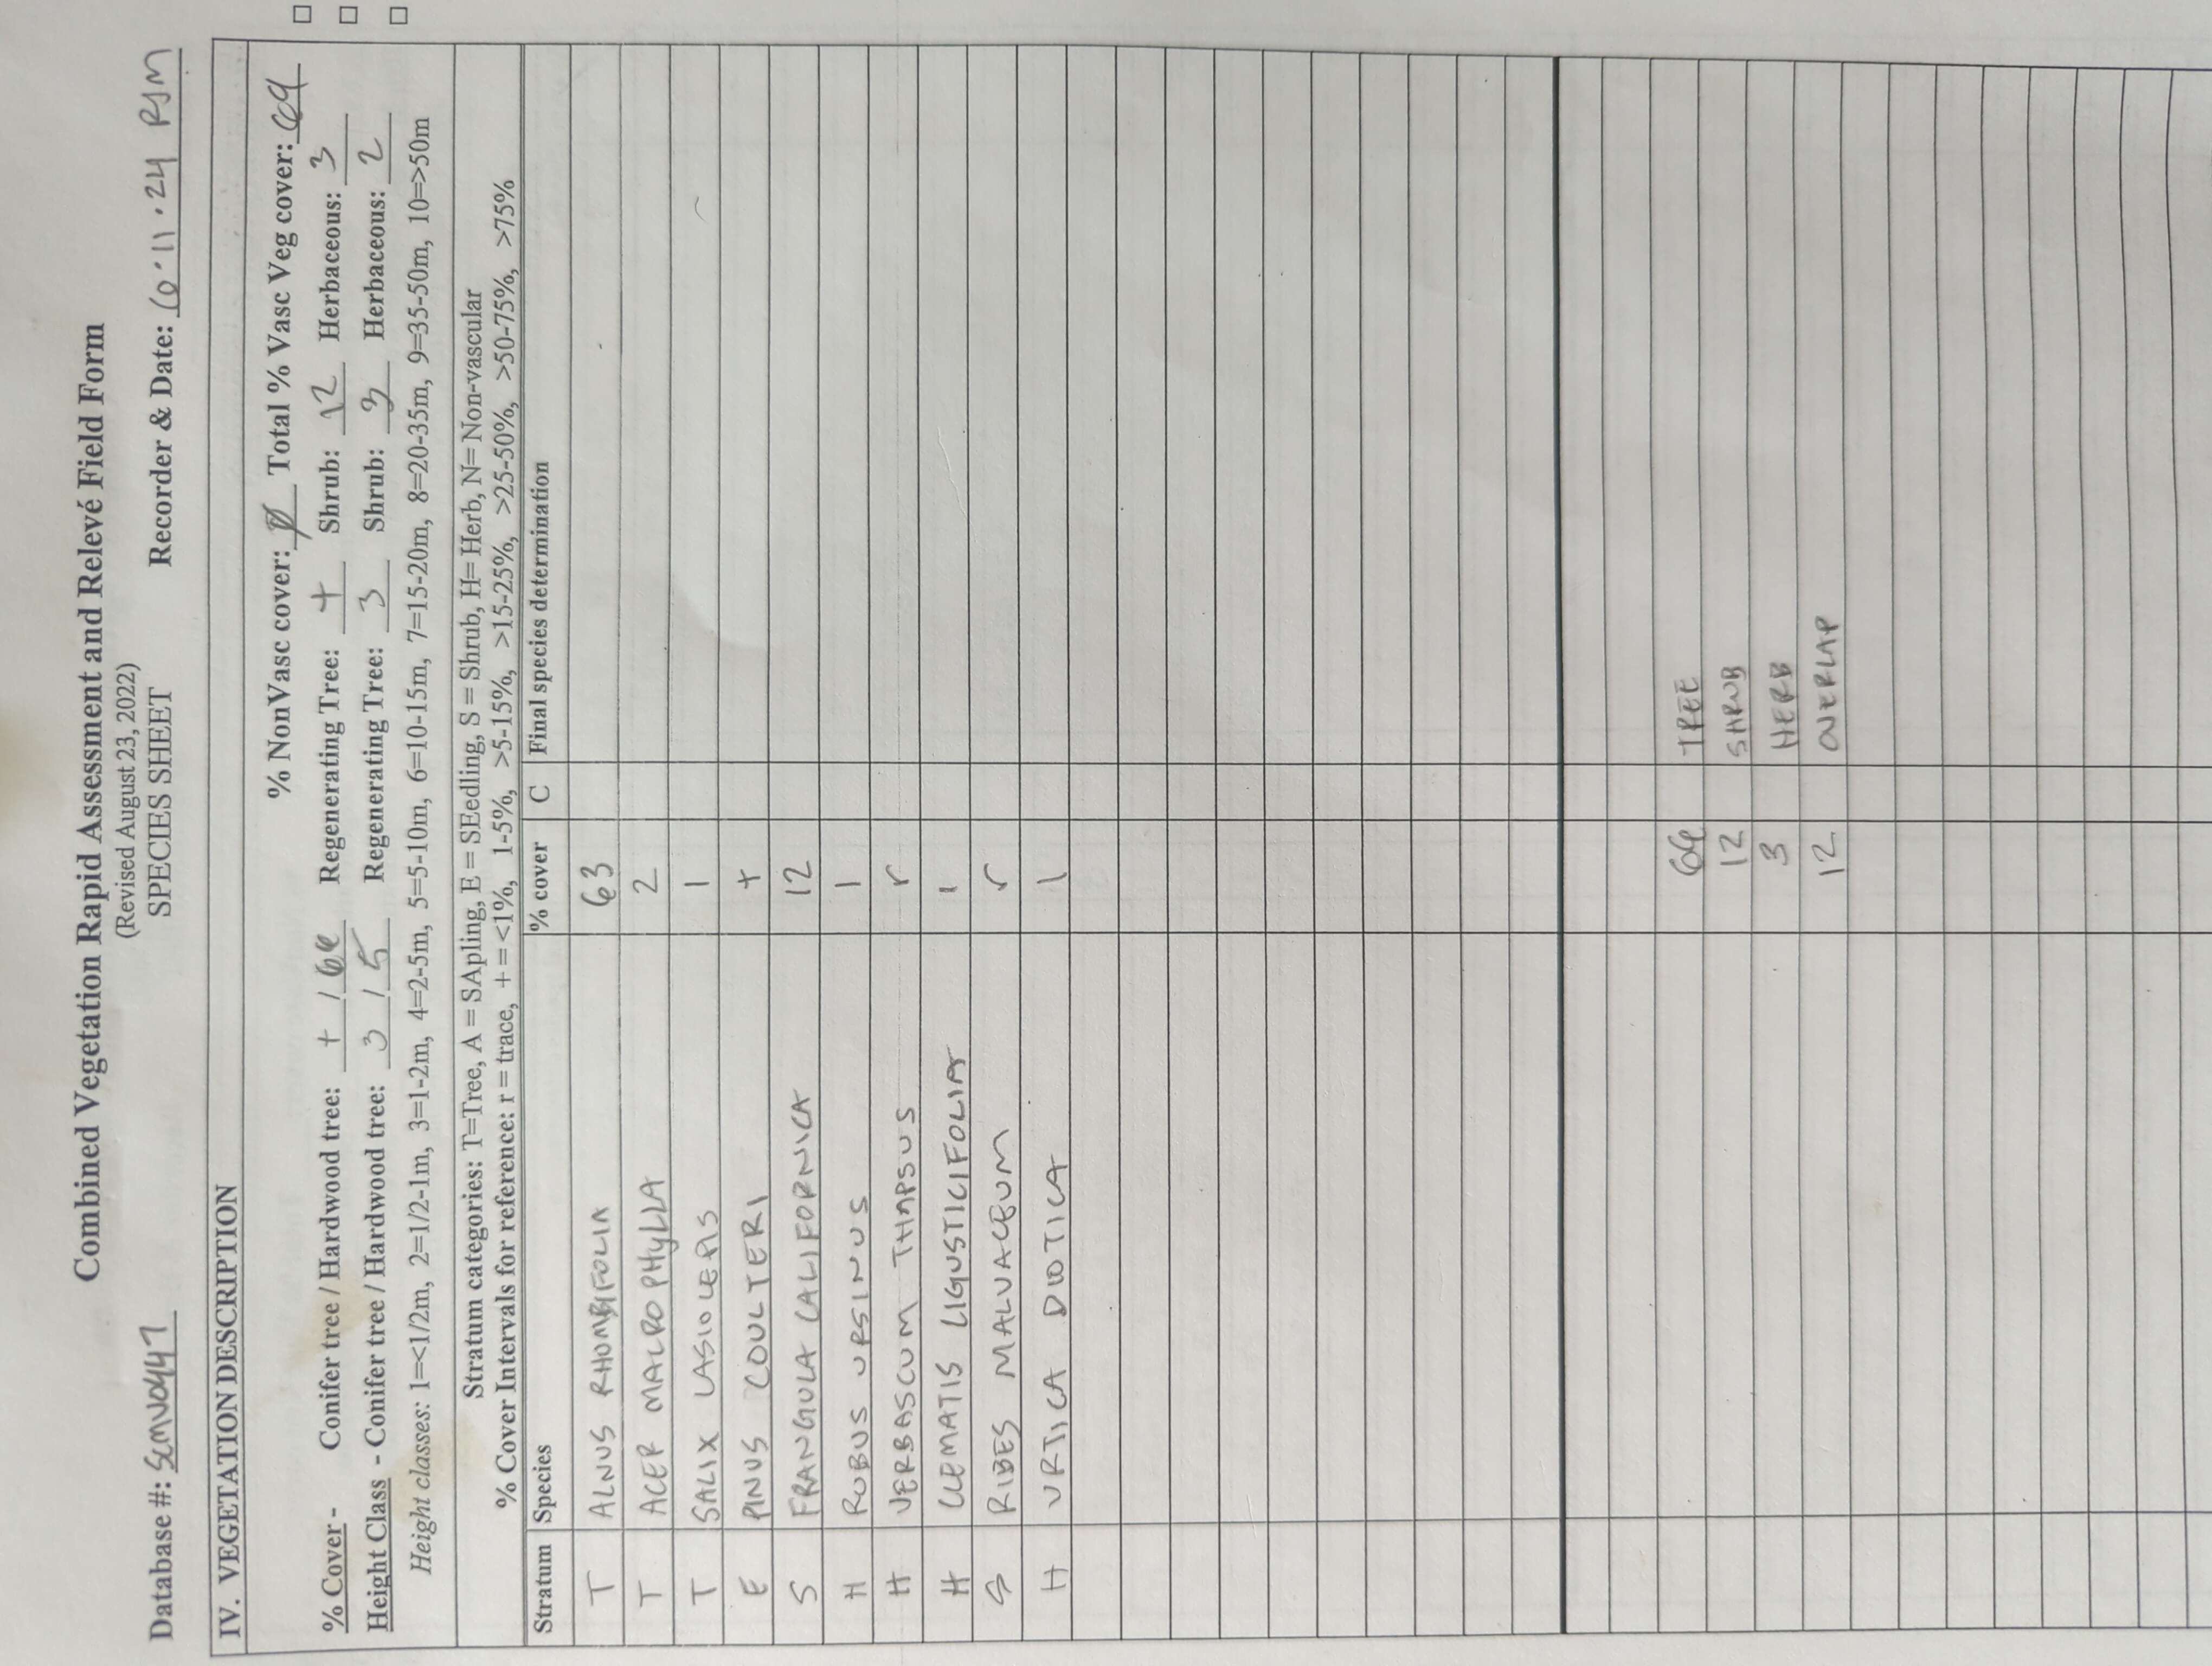 Combined Vegetation Rapid Assessment and Relevé Field Form
(Revised August 23, 2022)
SPECIES SHEET
Database #: SCMV0447 Recorder & Date: 6·11·24 RJM
IV. VEGETATION DESCRIPTION
% NonVasc cover: Ø Total % Vasc Veg cover: 69
% Cover - Conifer tree / Hardwood tree: + / 66 Regenerating Tree: + Shrub: 12 Herbaceous: 3
Height Class - Conifer tree / Hardwood tree: 3 / 5 Regenerating Tree: 3 Shrub: 3 Herbaceous: 2
Height classes: 1=<1/2m, 2=1/2-1m, 3=1-2m, 4=2-5m, 5=5-10m, 6=10-15m, 7=15-20m, 8=20-35m, 9=35-50m, 10=>50m
Stratum categories: T=Tree, A = SApling, E = SEedling, S = Shrub, H= Herb, N= Non-vascular
% Cover Intervals for reference: r = trace, + = <1%, 1-5%, >5-15%, >15-25%, >25-50%, >50-75%, >75%
Stratum Species % cover C Final species determination
T ALNUS RHOMBIFOLIA 63
T ACER MACROPHYLLA 2
T SALIX LASIOLEPIS 1
E PINUS COULTERI +
S FRANGULA CALIFORNICA 12
H RUBUS URSINUS 1
H VERBASCUM THAPSUS r
H CLEMATIS LIGUSTICIFOLIA 1
S RIBES MALVACEUM r
H URTICA DIOTICA 1
66 TREE
12 SHRUB
3 HERB
12 OVERLAP